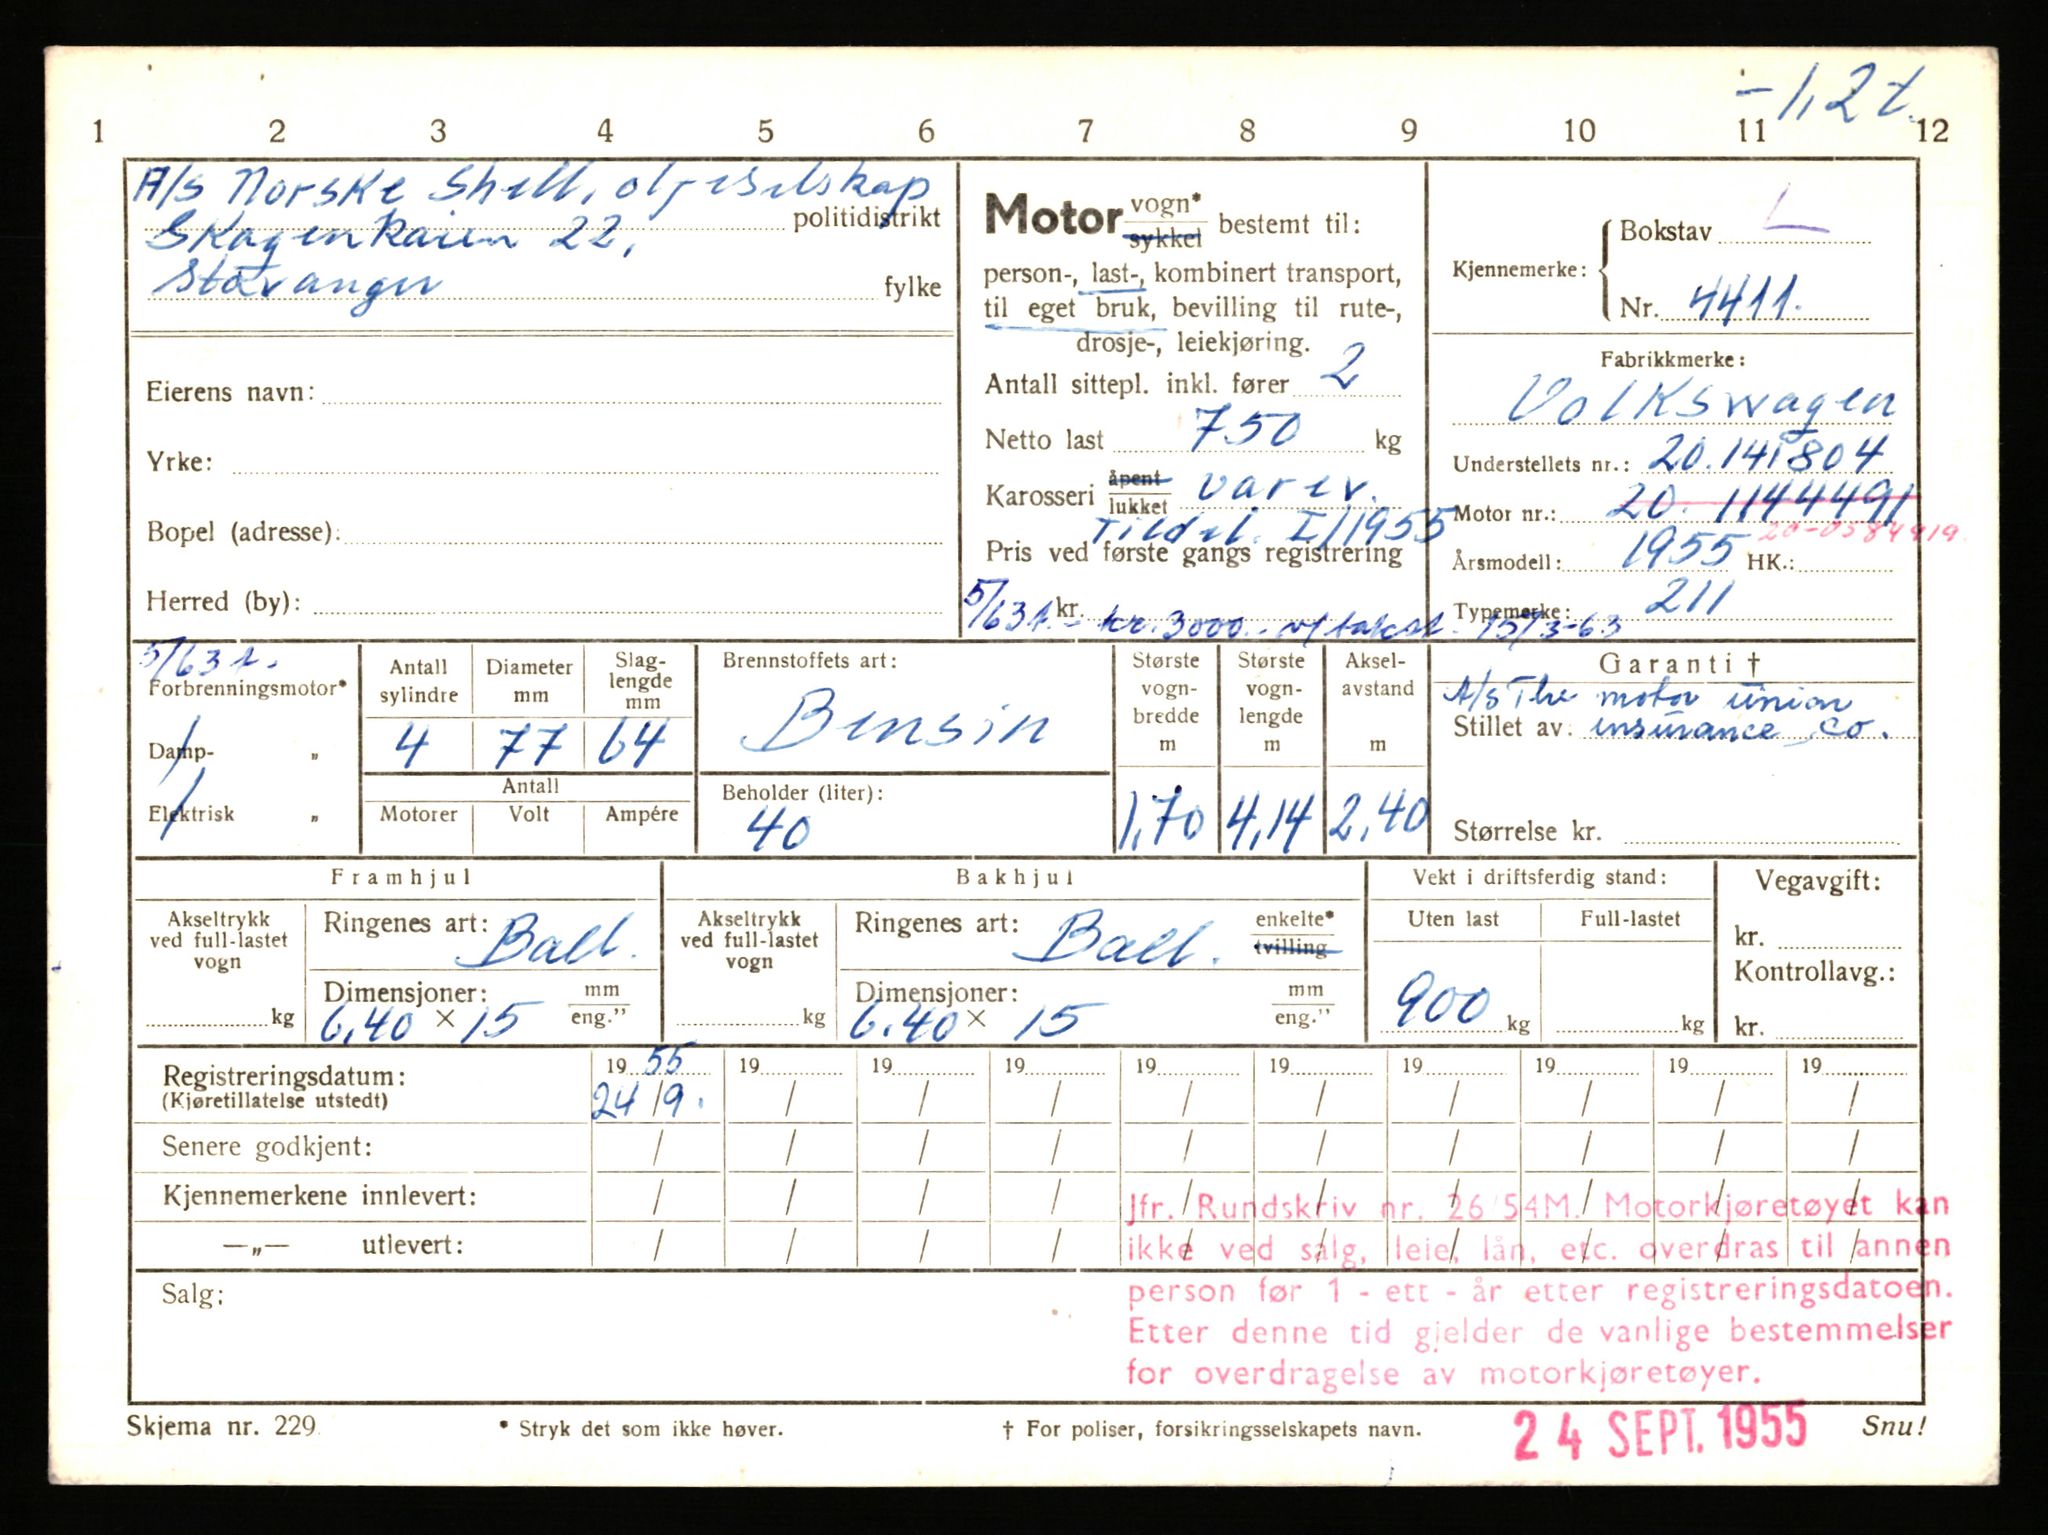 -1,2 t.
1 2 3 4 5 6 7 8 9 10 11 12
A/s Norske Shell, oljeselskap
politidistrikt
Skagenkaien 22,
Stavanger fylke
Eierens navn:
Yrke:
Bopel (adresse):
Herred (by):
Motor vogn* sykkel bestemt til:
person-, last-, kombinert transport,
til eget bruk, bevilling til rute-,
drosje-, leiekjøring.
Antall sittepl. inkl. fører 2
Netto last 750 kg
Karosseri åpent lukket varev.
Tildel. I/1955
Pris ved første gangs registrering
kr.
5/63 A. - kr. 3000.- v/takst. 15/3-63
Kjennemerke: Bokstav L
Nr. 4411.
Fabrikkmerke:
Volkswagen
Understellets nr.: 20.141804
Motor nr.: 20. 1144491
20-0584919
Årsmodell: 1955 HK.:
Typemerke: 211
5/63 A.
Forbrenningsmotor*
Damp- „
Elektrisk „
Antall sylindre
Diameter mm
Slag-lengde mm
4 77 64
Antall
Motorer Volt Ampére
Brennstoffets art:
Bensin
Beholder (liter):
40
Største vogn-bredde m
Største vogn-lengde m
Aksel-avstand m
1,70 4,14 2,40
Garanti †
A/s The motor union
Stillet av: insurance, co.
Størrelse kr.
Framhjul
Akseltrykk ved full-lastet vogn
kg
Ringenes art: Ball.
Dimensjoner: mm eng."
6,40 × 15
Bakhjul
Akseltrykk ved full-lastet vogn
kg
Ringenes art: Ball. enkelte* tvilling
Dimensjoner: mm eng."
6.40 × 15
Vekt i driftsferdig stand:
Uten last Full-lastet
900 kg kg
Vegavgift:
kr.
Kontrollavg.:
kr.
Registreringsdatum: 19 55 19 19 19 19 19 19 19 19 19
(Kjøretillatelse utstedt) 24/9. / / / / / / / / /
Senere godkjent: / / / / / / / / / /
Kjennemerkene innlevert: / / / / / / / / / /
—„— utlevert: / / / / / / / / / /
Salg:
Jfr. Rundskriv nr. 26/54M. Motorkjøretøyet kan
ikke ved salg, leie, lån, etc. overdras til annen
person før 1 - ett - år etter registreringsdatoen.
Etter denne tid gjelder de vanlige bestemmelser
for overdragelse av motorkjøretøyer.
Skjema nr. 229. * Stryk det som ikke høver. † For poliser, forsikringsselskapets navn. 24 SEPT. 1955 Snu!